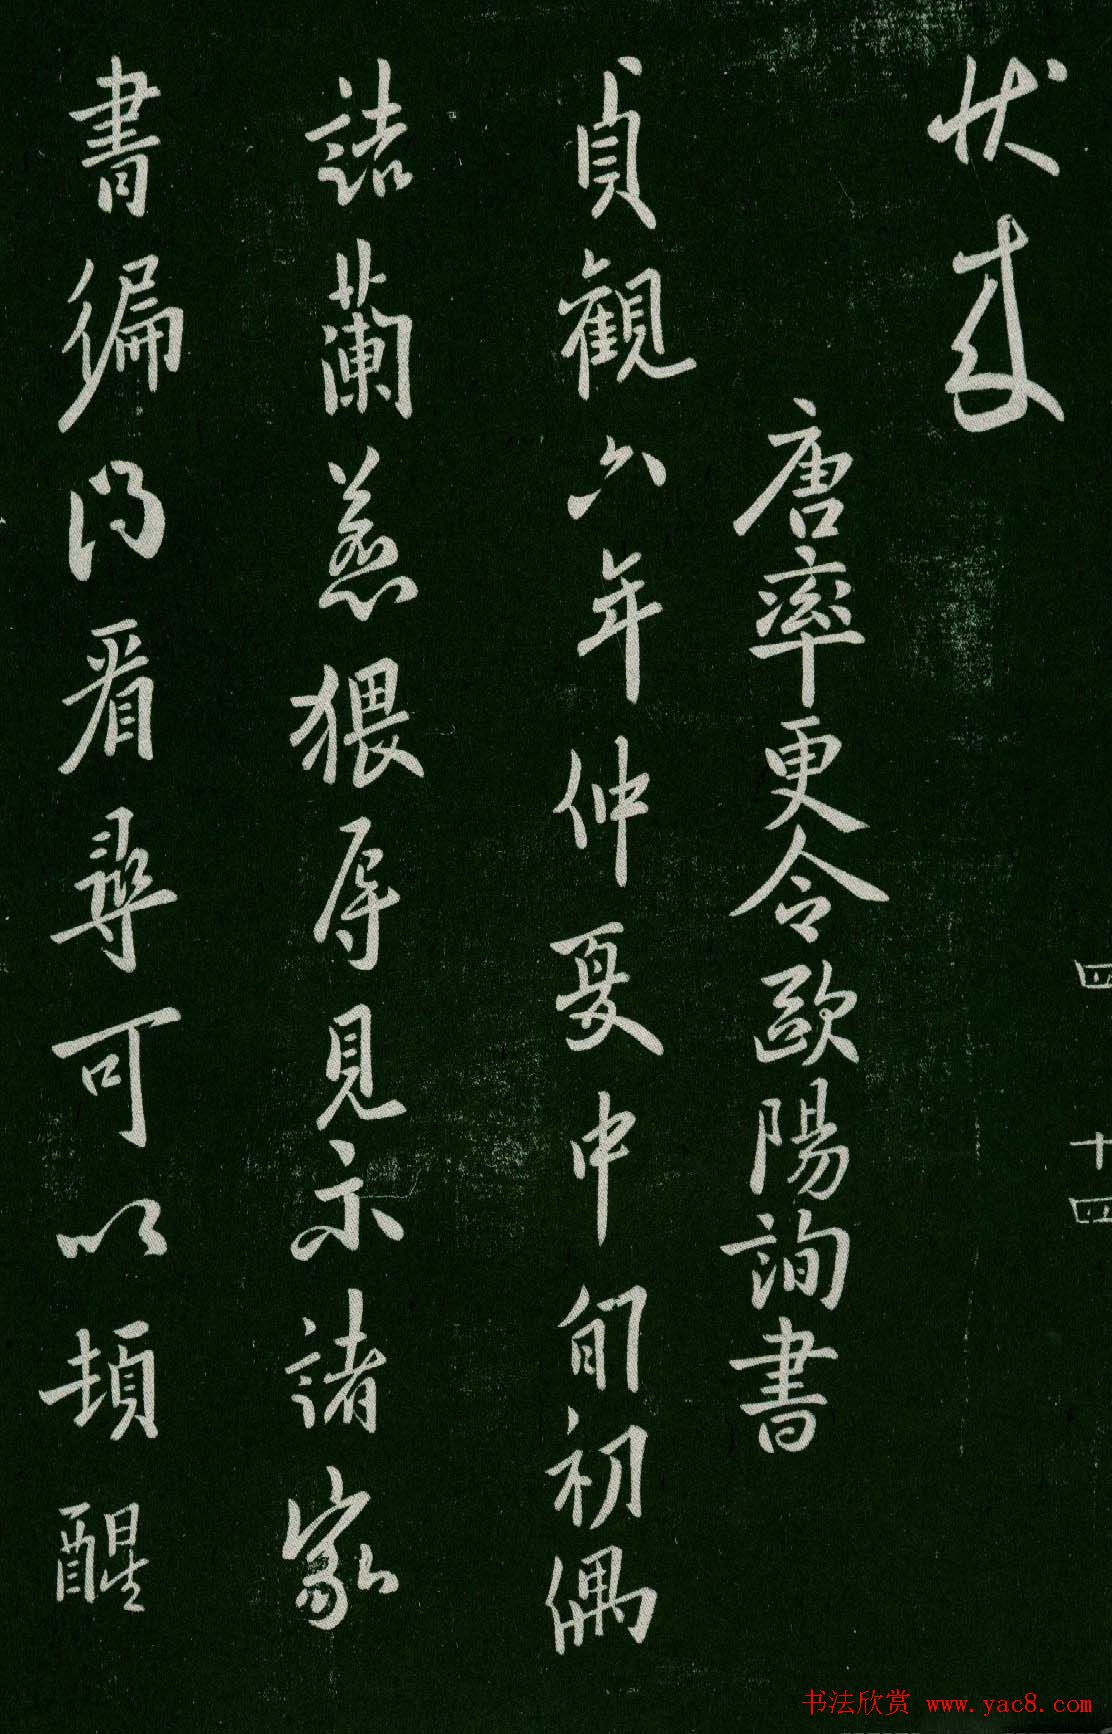 四 十四
状
唐率更令歐陽詢書
貞觀六年仲夏中旬初偶
詣蘭惹猥辱見示諸家
書徧得看尋可以頓醒
书法欣赏 www.yac8.com